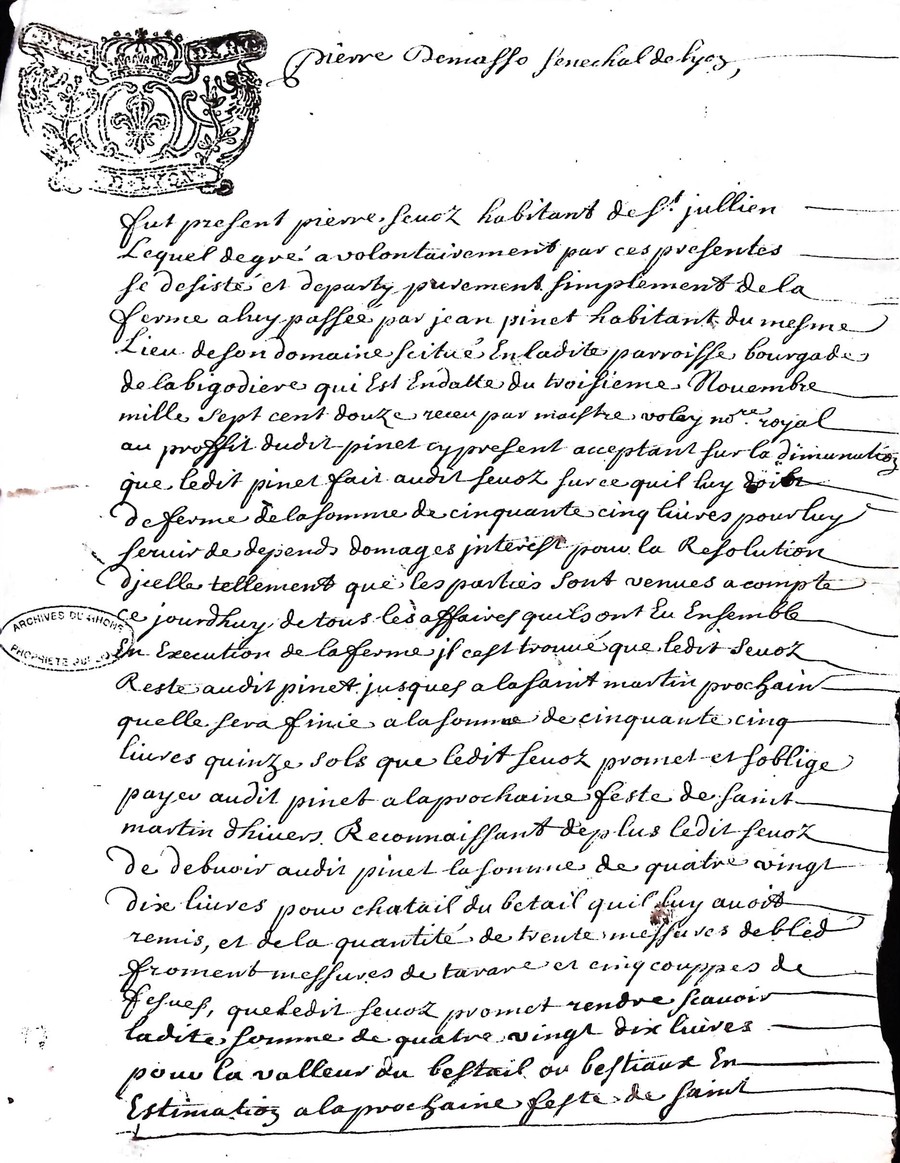 Pierre Demasso senechal de lyon,
D. LYON
fut present pierre sevoz habitant de St. jullien
Lequel de gré a volontairement par ces presentes
se desisté et departy purement simplement de la
ferme a luy passée par jean pinet habitant du mesme
Lieu de son domaine scitué En ladite parroisse bourgade
de labigodiere qui Est En datte du troisieme Novembre
mille sept cent douze receu par maistre voley nore. royal
au proffit dudit pinet cy present acceptant sur la diminution
que ledit pinet fait audit sevoz sur ce quil luy doibt
de ferme de la somme de cinquante cinq livres pour luy
servir de depends domages jnterest pour la Resolution
djcelle tellement que les parties sont venues a compte
ce jourdhuy de tous les affaires quils ont Eu Ensemble
En Execution de la ferme jl cest trouvé que ledit sevoz
Reste audit pinet jusques a la saint martin prochain
quelle sera finie a la somme de cinquante cinq
livres quinze sols que ledit sevoz promet et soblige
payer audit pinet a la prochaine feste de saint
martin dhivers Reconnaissant de plus ledit sevoz
de debvoir audit pinet la somme de quatre vingt
dix livres pour chatail du betail quil luy avoit
remis, et de la quantité de trente messures de bled
froment messures de tarare et cinq couppes de
fesves, que ledit sevoz promet rendre scavoir
ladite somme de quatre vingt dix livres
pour la valleur du bestail ou bestiaux En
Estimation a la prochaine feste de saint
ARCHIVES DU RHONE
PROPRIETE PUBLIQUE